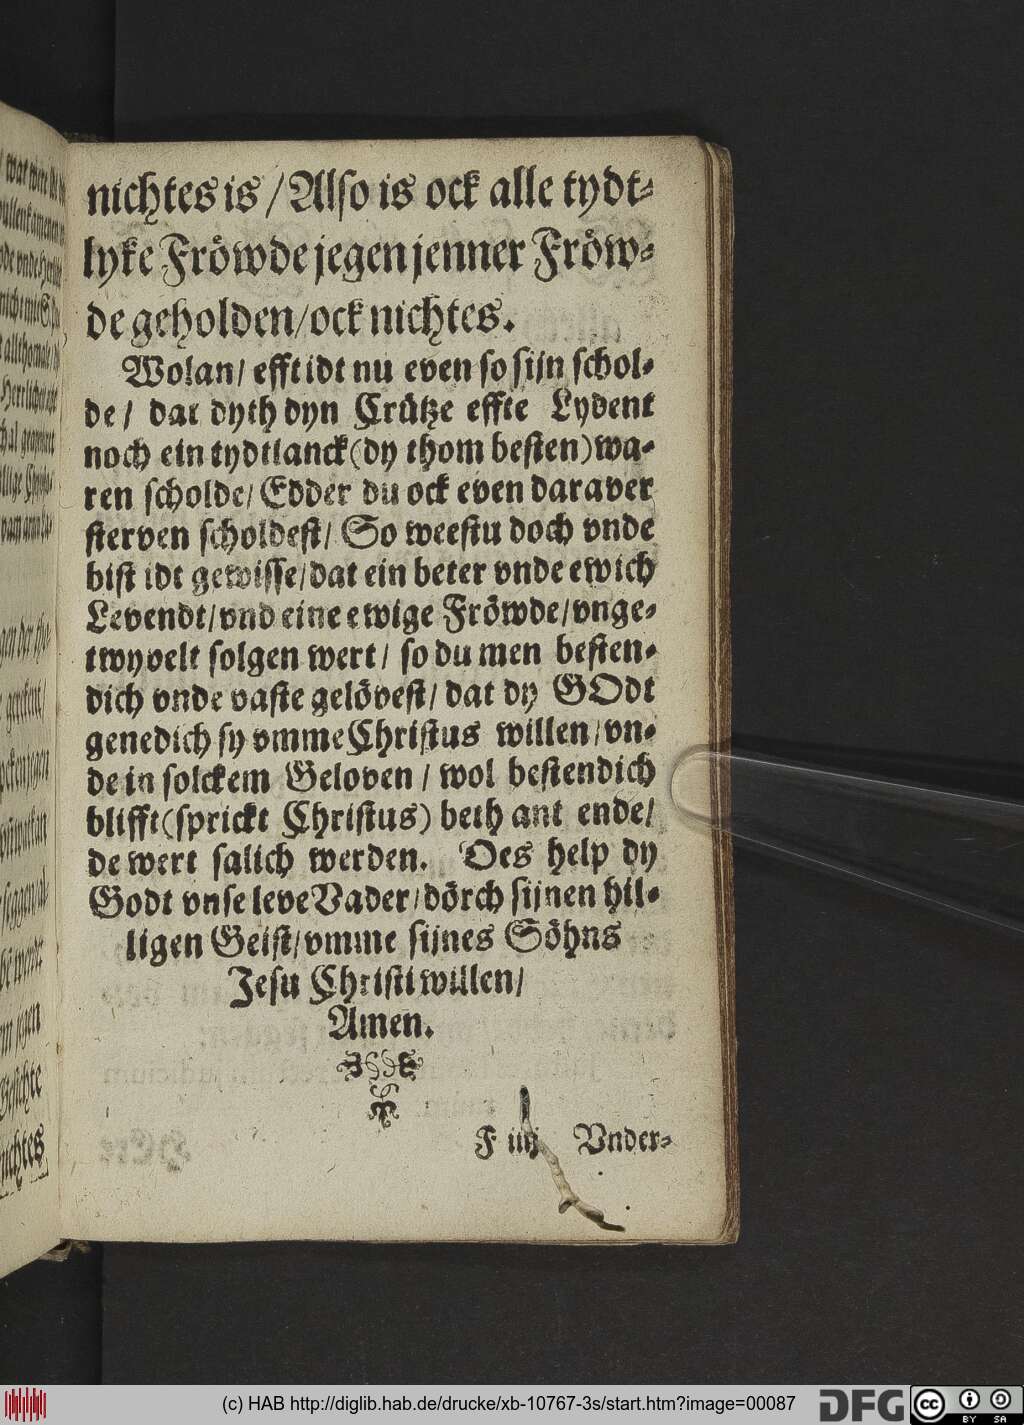 nichtes is / Also is ock alle tydt⸗
lyke Fröwde jegen jenner Fröw⸗
de geholden / ock nichtes.
Wolan / efft idt nu even so sijn schol⸗
de / dat dyth dyn Crütze effte Lydent
noch ein tydtlanck (dy thom besten) wa⸗
ren scholde / Edder du ock even daraver
sterven scholdest / So weestu doch vnde
bist idt gewisse / dat ein beter vnde ewich
Levendt / vnd eine ewige Fröwde / vnge⸗
twyvelt folgen wert / so du men besten⸗
dich vnde vaste gelövest / dat dy GOdt
genedich sy vmme Christus willen / vn⸗
de in solckem Geloven / wol bestendich
blifft (sprickt Christus) beth ant ende /
de wert salich werden. Des help dy
Godt vnse leve Vader / dörch sijnen hil⸗
ligen Geist / vmme sijnes Söhns
Jesu Christi willen /
Amen.
F iiij Vnder⸗
(c) HAB http://diglib.hab.de/drucke/xb-10767-3s/start.htm?image=00087
DFG
cc BY SA